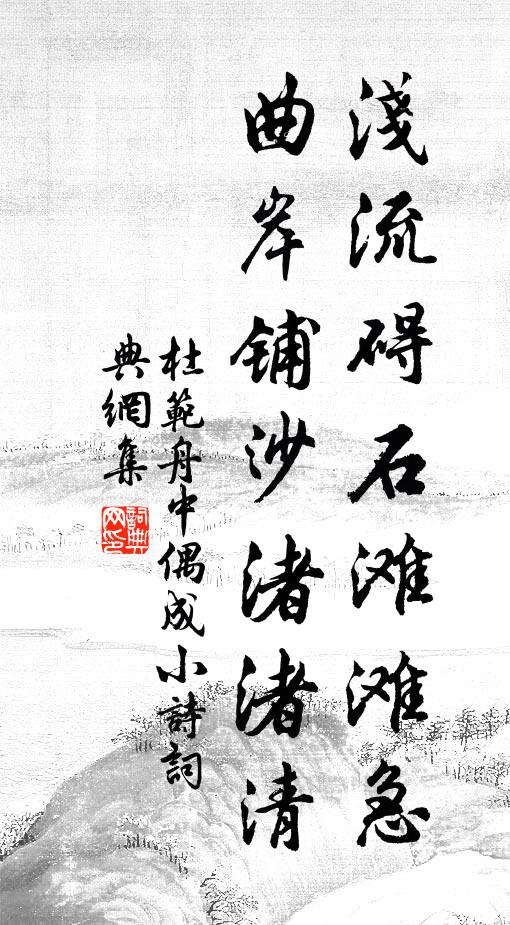 淺流碍石滩滩急
曲岸铺沙渚渚清
杜範舟中偶成小詩詞
典網集
詞典网印